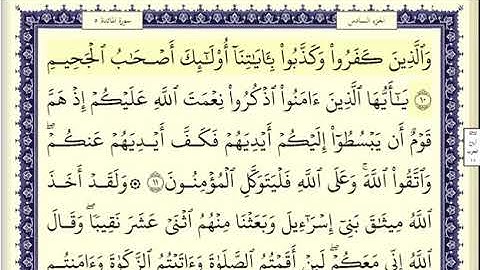 الجزء السادس سورة المائدة ٥
وَٱلَّذِينَ كَفَرُوا۟ وَكَذَّبُوا۟ بِـَٔايَـٰتِنَآ أُو۟لَـٰٓئِكَ أَصْحَـٰبُ ٱلْجَحِيمِ
١٠ يَـٰٓأَيُّهَا ٱلَّذِينَ ءَامَنُوا۟ ٱذْكُرُوا۟ نِعْمَتَ ٱللَّهِ عَلَيْكُمْ إِذْ هَمَّ
قَوْمٌ أَن يَبْسُطُوٓا۟ إِلَيْكُمْ أَيْدِيَهُمْ فَكَفَّ أَيْدِيَهُمْ عَنكُمْ ۖ
وَٱتَّقُوا۟ ٱللَّهَ ۚ وَعَلَى ٱللَّهِ فَلْيَتَوَكَّلِ ٱلْمُؤْمِنُونَ ١١ ۞ وَلَقَدْ أَخَذَ
ٱللَّهُ مِيثَـٰقَ بَنِىٓ إِسْرَٰٓءِيلَ وَبَعَثْنَا مِنْهُمُ ٱثْنَىْ عَشَرَ نَقِيبًا ۖ وَقَالَ
ٱللَّهُ إِنِّى مَعَكُمْ ۖ لَئِنْ أَقَمْتُمُ ٱلصَّلَوٰةَ وَءَاتَيْتُمُ ٱلزَّكَوٰةَ وَءَامَنتُم